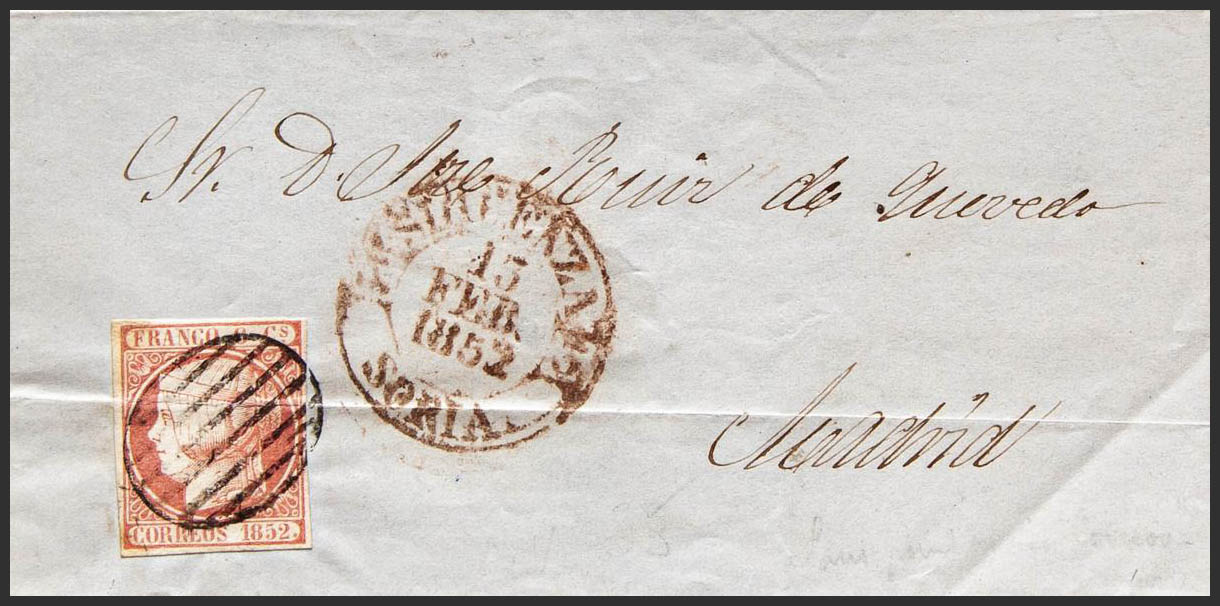 Sr. D. Jose Ruiz de Quevedo
15
FEB
1852
SORIA.
Madrid
FRANCO 6 Cs
CORREOS 1852.